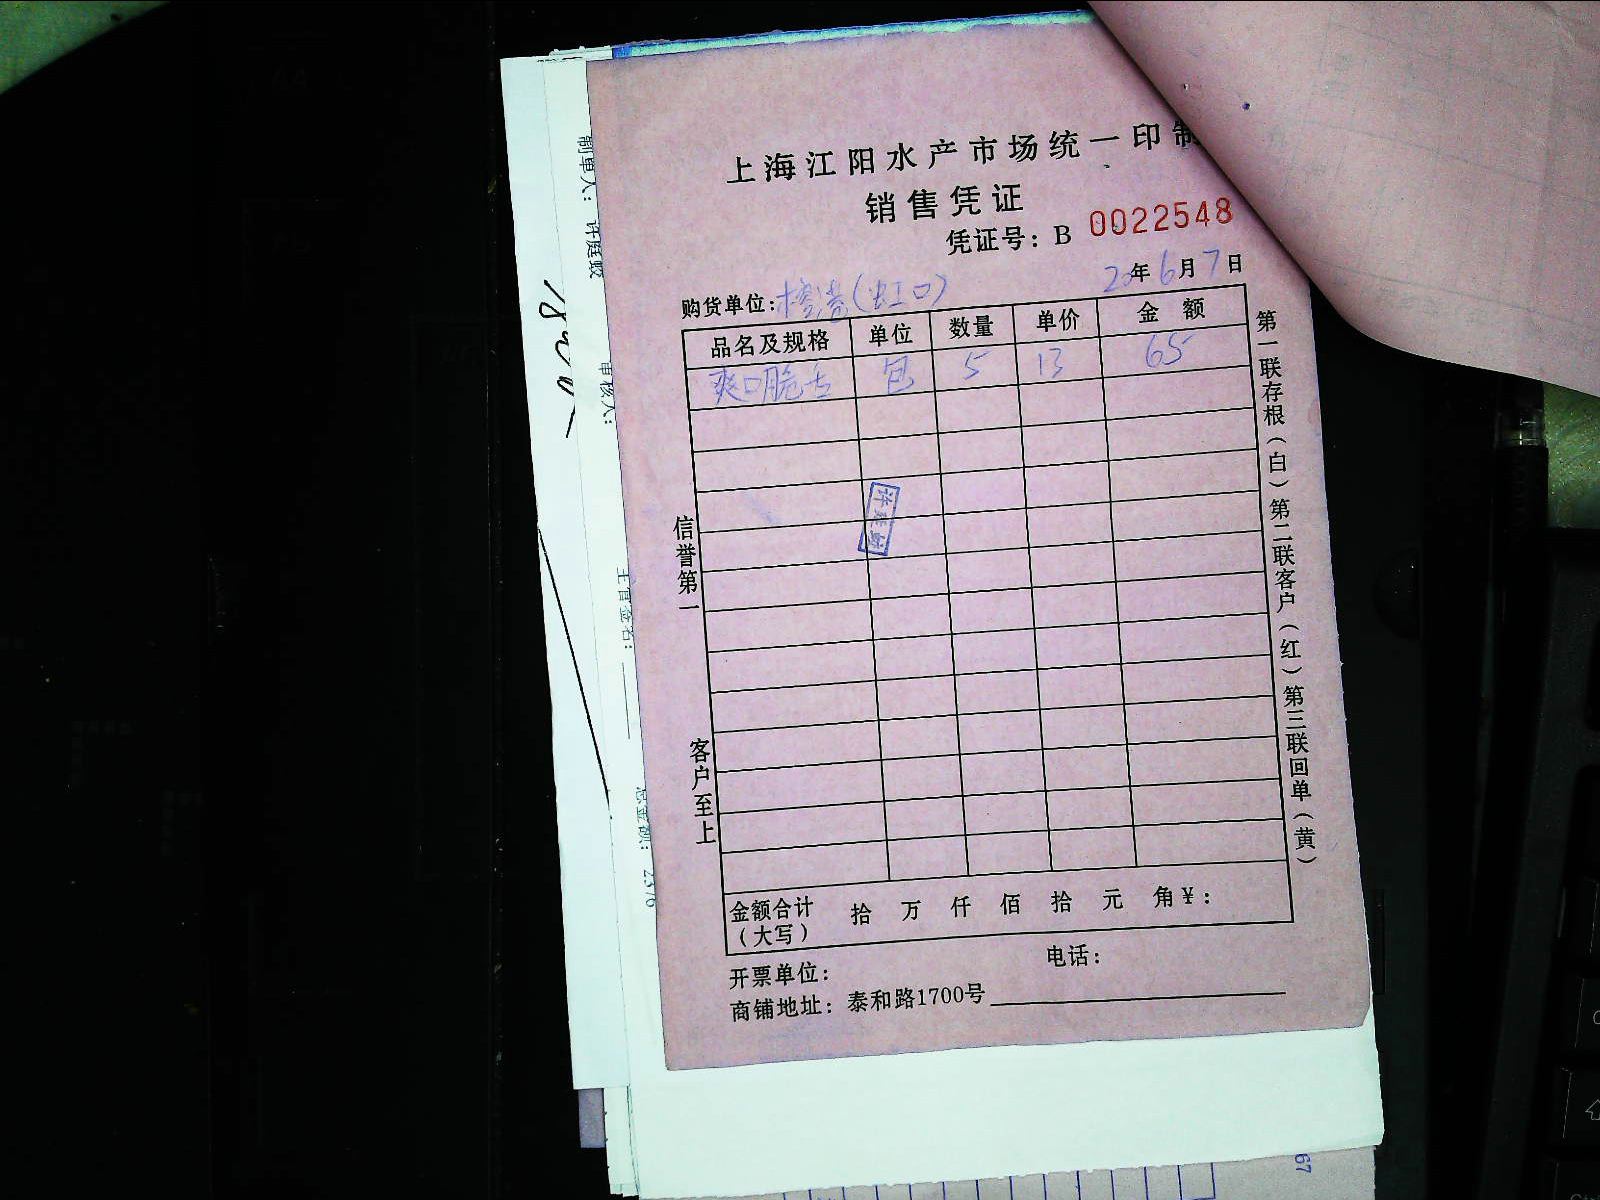 上海江阳水产市场统一印制
销售凭证
凭证号：B 0022548
20年6月7日
购货单位：榕港（虹口）
品名及规格 单位 数量 单价 金额
爽口脆 包 5 13 65
信誉第一
客户至上
第一联存根（白）第二联客户（红）第三联回单（黄）
金额合计（大写） 拾 万 仟 佰 拾 元 角 ¥：
开票单位： 电话：
商铺地址：泰和路1700号
制单人：许庭姣
审核人：
主管签名：
总金额：2376
67